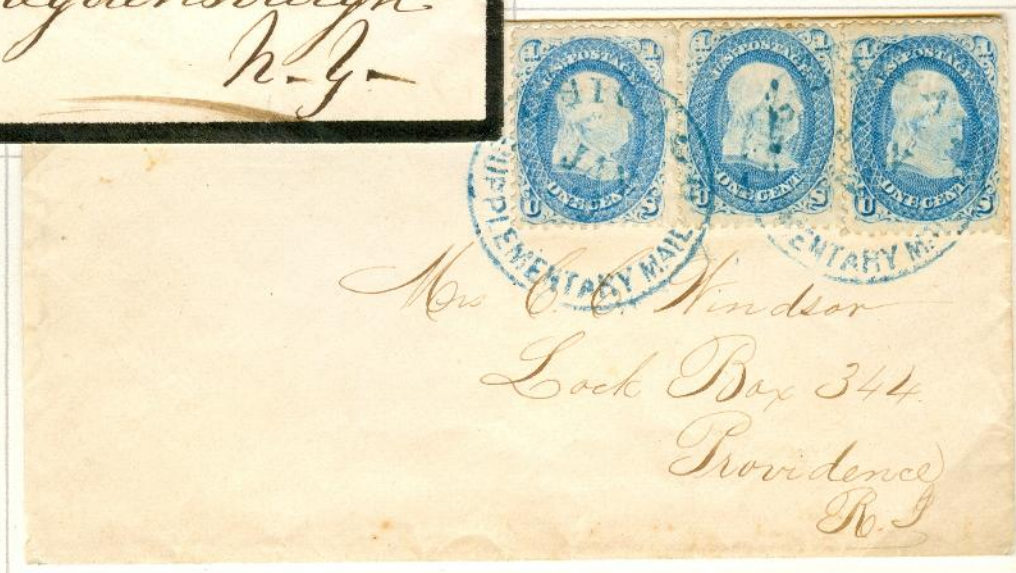 N-Y-
1 U.S. POSTAGE 1
ONE CENT
U S
1 U.S. POSTAGE 1
ONE CENT
U S
1 U.S. POSTAGE 1
ONE CENT
U S
SUPPLEMENTARY MAIL
Mrs C. C. Windsor
Lock Box 344.
Providence
R. I